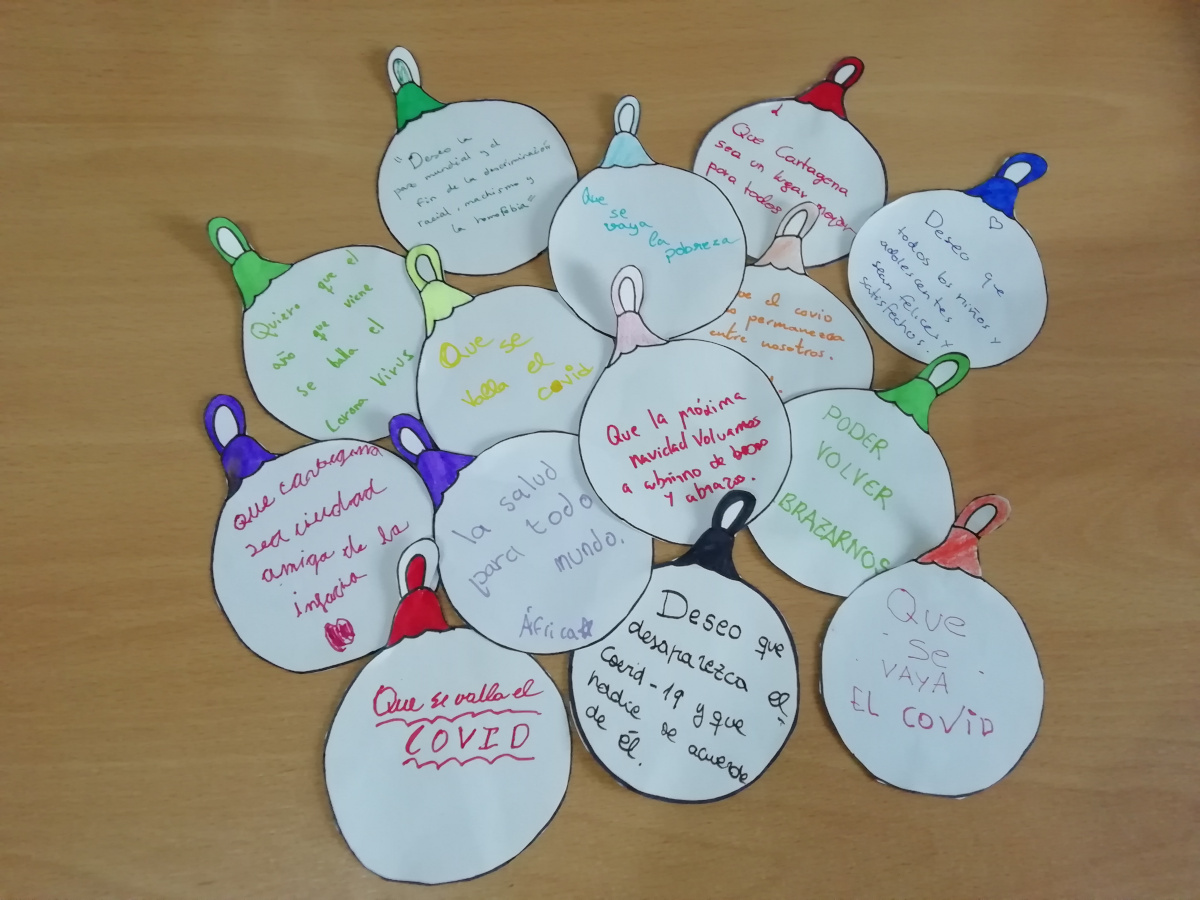 "Deseo la
paz mundial y el
fin de la discriminación
racial, machismo y
la homofobia"
Que
se
vaya la
pobreza
Que Cartagena
sea un lugar mejor
para todos
Deseo que
todos los niños y
adolescentes
sean felices y
satisfechos.
Quiero que el
año que viene
se balla el
Corona Virus
Que se
valla el
covid
el covid
permanezca
entre nosotros.
Que la próxima
navidad Volvamos
a de besos
y abrazos.
PODER
VOLVER
BRAZARNOS
que cartagena
sea ciudad
amiga de la
infacia
la salud
para todo
mundo.
África
Que se valla el
COVID
Deseo que
desaparezca el
Covid-19 y que
nadie se acuerde
de él.
Que
se
VAYA
EL COVID